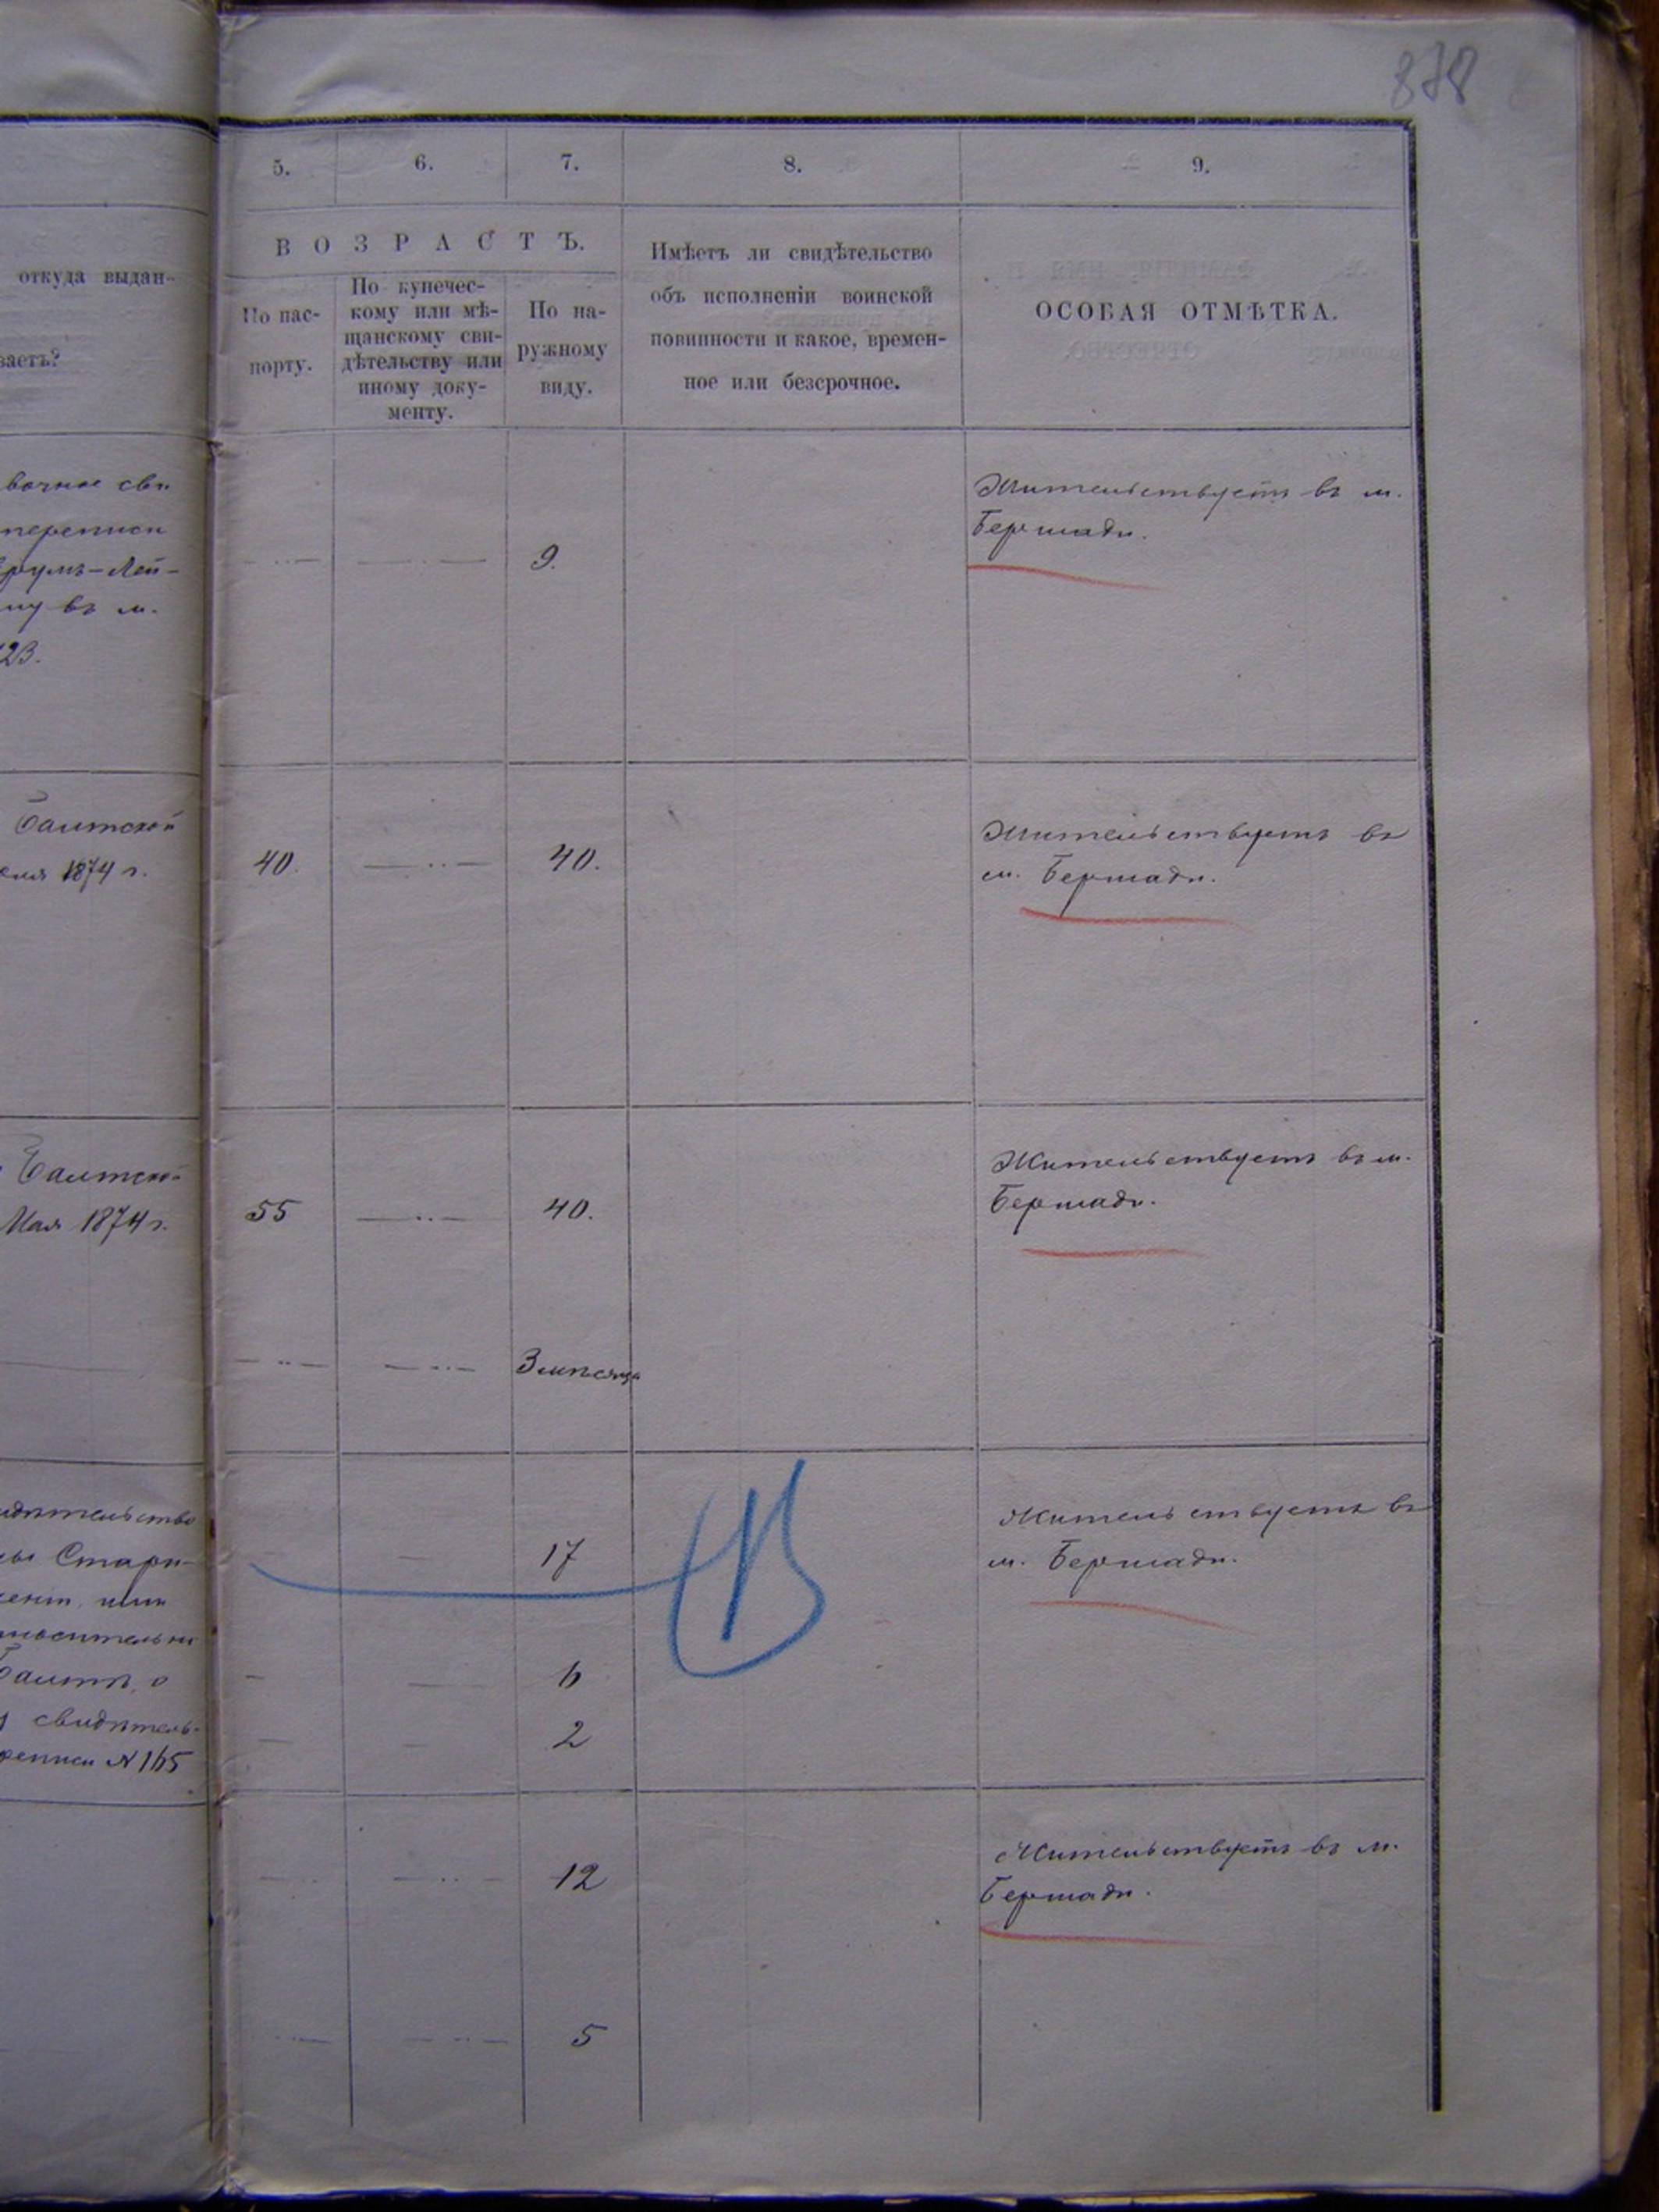 878
5. 6. 7. 8. 9.
ВОЗРАСТЪ.
откуда выдан-
ваетъ?
По пас-
порту.
По купечес-
кому или мѣ-
щанскому сви-
дѣтельству или
иному доку-
менту.
По на-
ружному
виду.
Имѣетъ ли свидѣтельство
объ исполненіи воинской
повинности и какое, времен-
ное или безсрочное.
ОСОБАЯ ОТМѢТКА.
вочное сви
переписи
румъ-Лей-
ну въ м.
123.
9.
Жительствуетъ въ м.
Бершади.
Балтской
1874 г.
40. 40.
Жительствуетъ въ
м. Бершади.
Балтской
Мая 1874 г.
55 40.
Жительствуетъ въ м.
Бершади.
3 мѣсяца
идѣтельство
Стари-
или
Балтѣ, о
свидѣтель-
реписи № 165
17
6
2
Жительствуетъ въ
м. Бершади.
12
5
Жительствуетъ въ м.
Бершади.